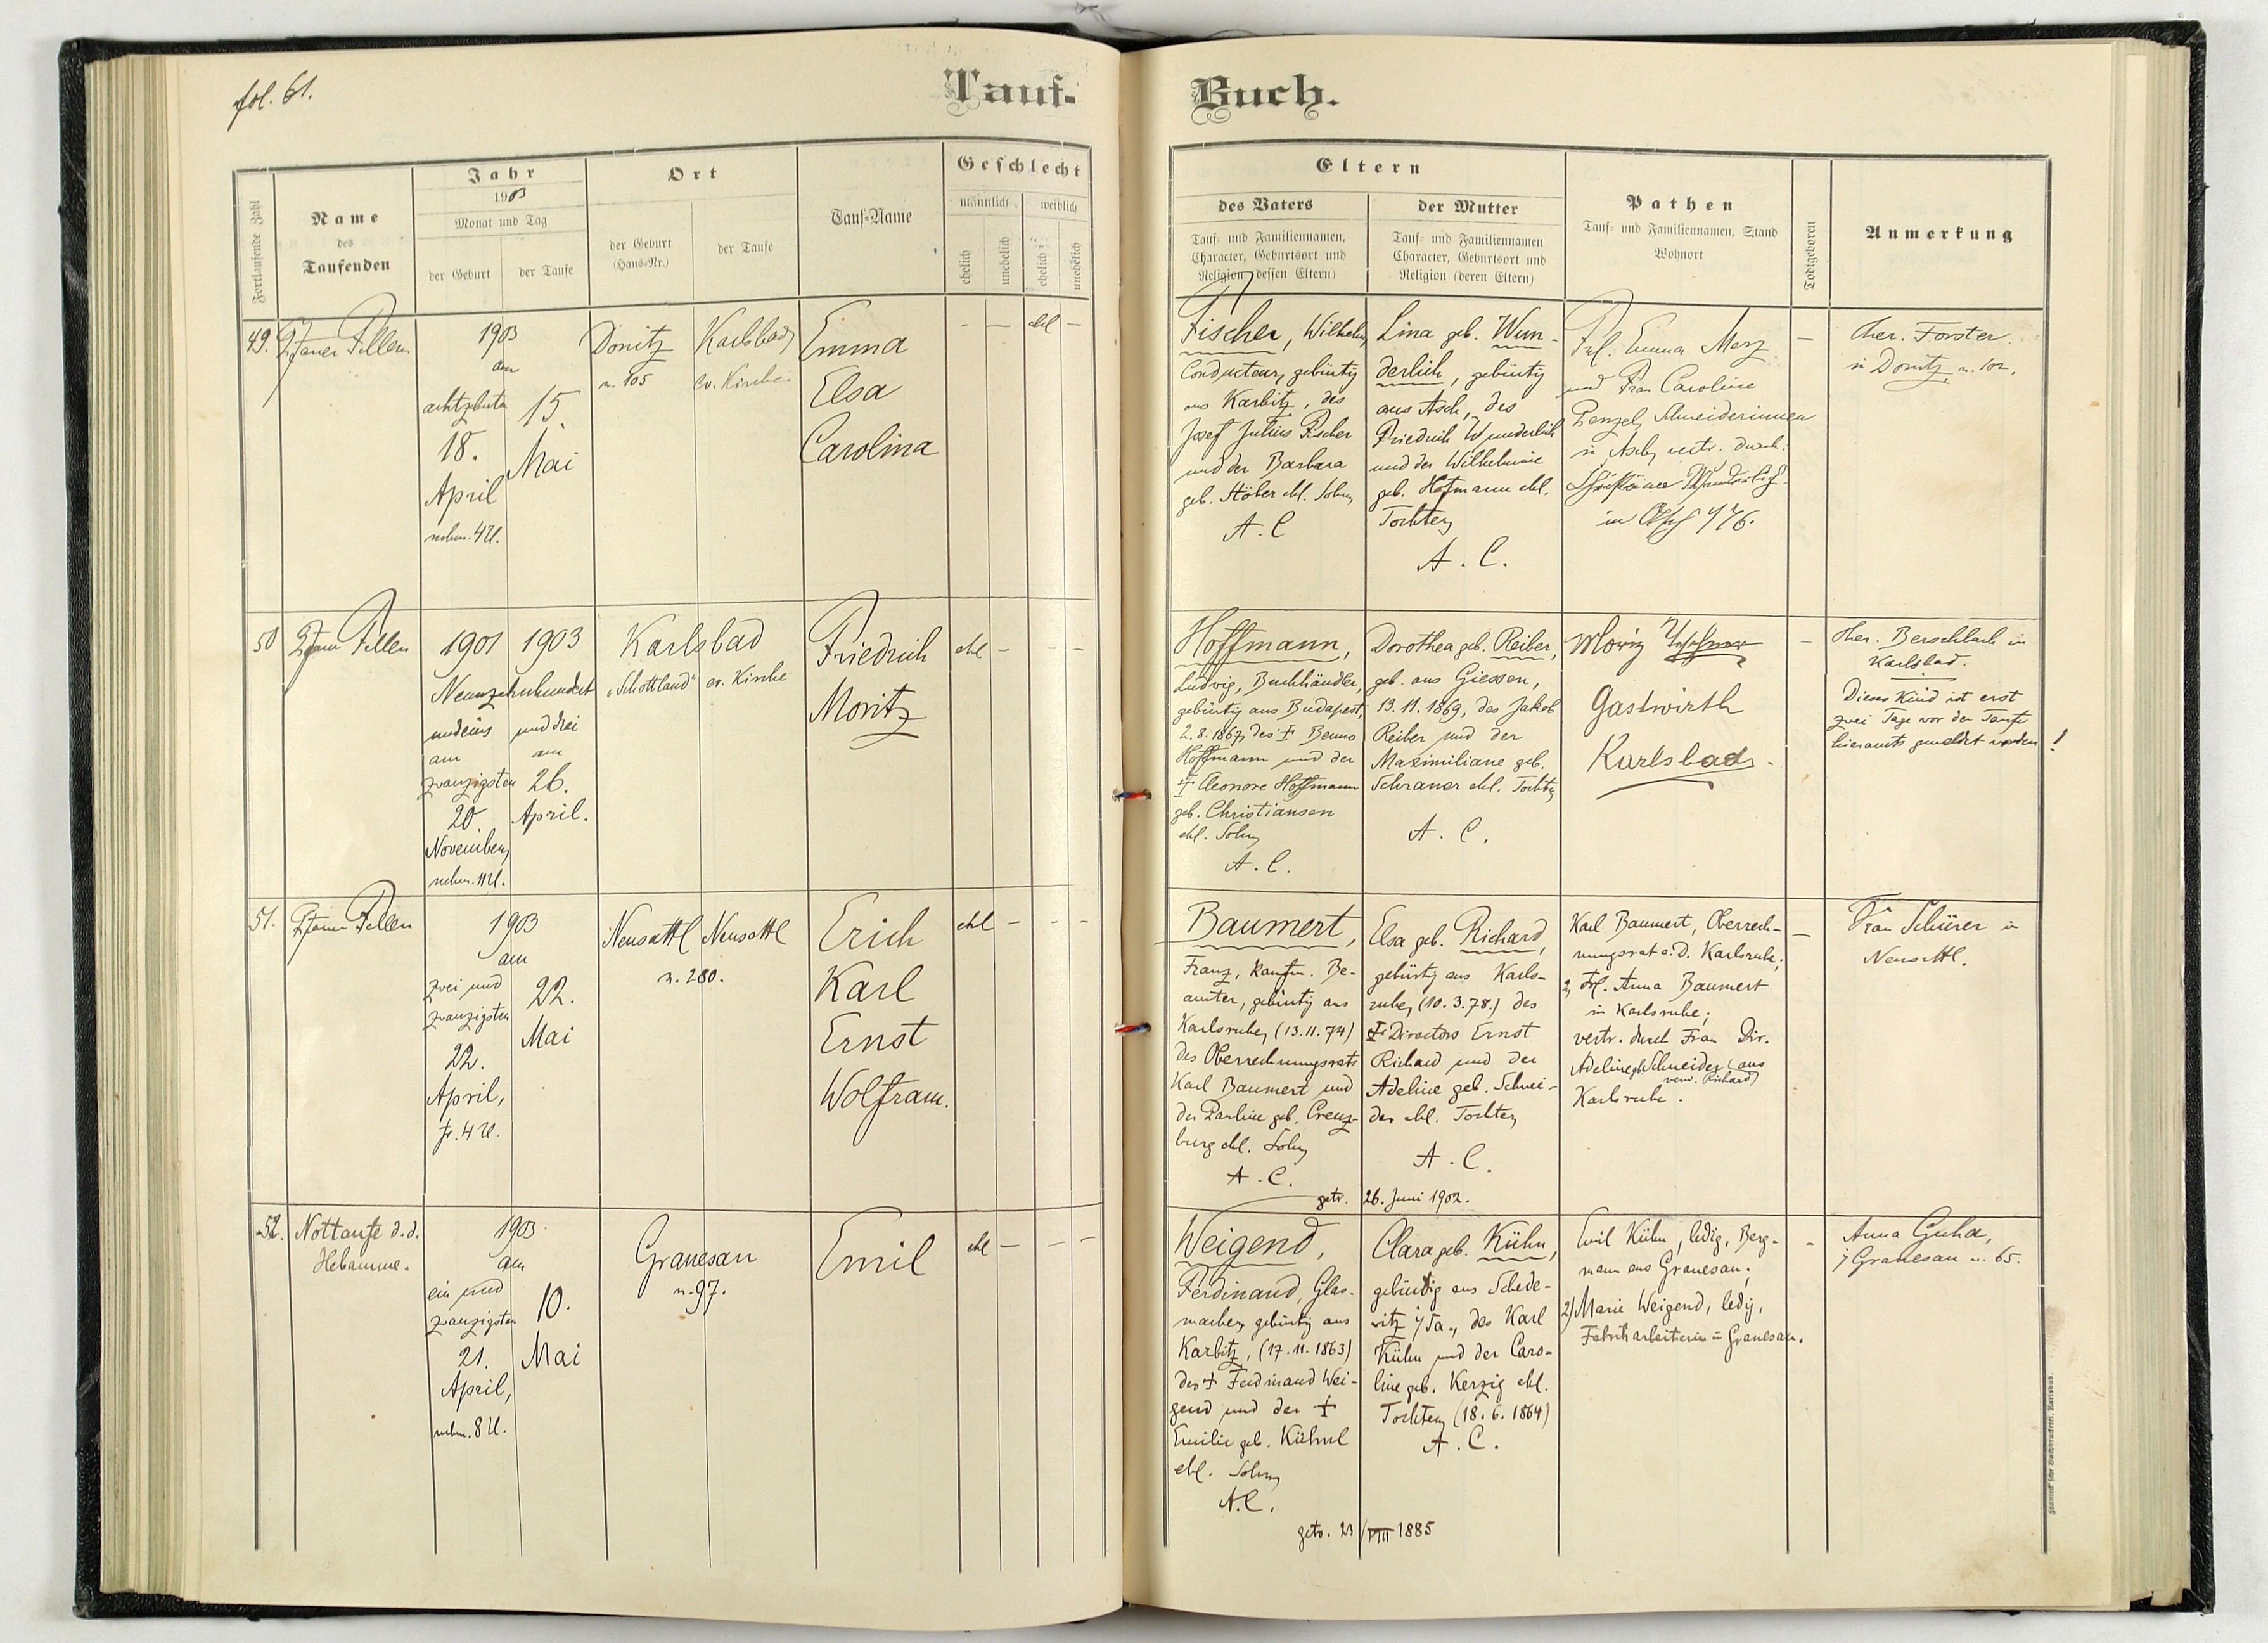 fol. 61.
Tauf-
Buch.
Fortlaufende Zahl
Name
des
Taufenden
Jahr
1903
Monat und Tag
der Geburt
der Taufe
Ort
der Geburt
(Haus-Nr.)
der Taufe
Tauf-Name
Geschlecht
männlich
weiblich
ehelich
unehelich
ehelich
unehelich
Eltern
des Vaters
Tauf- und Familiennamen,
Character, Geburtsort und
Religion (dessen Eltern)
der Mutter
Tauf- und Familiennamen
Character, Geburtsort und
Religion (deren Eltern)
Pathen
Tauf- und Familiennamen, Stand
Wohnort
Todtgeboren
Anmerkung
49.
Pfarrer
1903
am
achtzehnten
18.
April
nchm. 4 U.
15.
Mai
Donitz
n. 105
Karlsbad
ev. Kirche
Emma
Elsa
Carolina
-
—
ehl
—
Fischer, Wilhelm,
Conducteur, gebürtig
aus Karbitz, des
Josef Julius Fischer
und der Barbara
geb. Stöber ehl. Sohn
A. C
Lina geb. Wun-
derlich, gebürtig
aus Asch, des
Friedrich Wunderlich
und der Wilhelmine
geb. Hofmann ehl.
Tochter
A. C.
Frl. Emma Merz
und Frau Caroline
Penzel, Schneiderinnen
in Asch, vertr. durch:
Wunderlich
in Asch 476.
—
Her. Forster
in Donitz n. 102.
50
Pfarrer
1901
Neunzehnhundert
undeins
am
zwanzigsten
20.
November
nchm. 11 U.
1903
und drei
am
26.
April.
Karlsbad
"Schottland"
ev. Kirche
Friedrich
Moritz
ehl
-
-
-
Hoffmann,
Ludwig, Buchhändler,
gebürtig aus Budapest,
2. 8. 1867, des † Benno
Hoffmann und der
† Eleonore Hoffmann
geb. Christiansen
ehl. Sohn
A. C.
Dorothea geb. Reiber,
geb. aus Giessen,
13. 11. 1869, des Jakob
Reiber und der
Maximiliane geb.
Schraner ehl. Tochter
A. C.
Moriz
Gastwirth
Karlsbad.
-
Her. Berschlach in
Karlsbad.
Dieses Kind ist erst
zwei Tage vor der Taufe
hieramts gemeldet worden!
51.
Pfarrer
1903
am
zwei und
zwanzigsten
22.
April,
fr. 4 U.
22.
Mai
Neusattl
n. 280.
Neusattl
Erich
Karl
Ernst
Wolfram.
ehl
-
-
-
Baumert,
Franz, kaufm. Be-
amter, gebürtig aus
Karlsruhe, (13. 11. 74)
des Oberrechnungsrats
Karl Baumert und
der Pauline geb. Creuz-
burg ehl. Sohn
A. C.
Elsa geb. Richard,
gebürtig aus Karls-
ruhe, (10. 3. 78.) des
† Directors Ernst
Richard und der
Adeline geb. Schnei-
der ehl. Tochter
A. C.
getr. 26. Juni 1902.
Karl Baumert, Oberrech-
nungsrat a. D. Karlsruhe;
2, Frl. Anna Baumert
in Karlsruhe;
vertr. durch Frau Dir.
Adeline Schneider (aus
verw. Richard)
Karlsruhe.
—
Frau Schürer in
Neusattl.
52.
Nottaufe d. d.
Hebamme.
1903
am
ein und
zwanzigsten
21.
April,
nchm. 8 U.
10.
Mai
Granesau
n. 97.
Emil
ehl
—
-
-
Weigend,
Ferdinand, Glas-
macher, gebürtig aus
Karbitz, (17. 11. 1863)
des † Ferdinand Wei-
gend und der †
Emilie geb. Kühnel
ehl. Sohn
A. C.
Clara geb. Kühn,
gebürtig aus Schede-
witz i/Sa., des Karl
Kühn und der Caro-
line geb. Kerzig ehl.
Tochter (18. 6. 1864)
A. C.
getr. 23/VIII 1885
Emil Kühn, ledig, Berg-
mann aus Granesau;
2) Marie Weigend, ledig,
Fabrikarbeiterin in Granesau.
-
Anna Guha,
i/ Granesau n. 65.